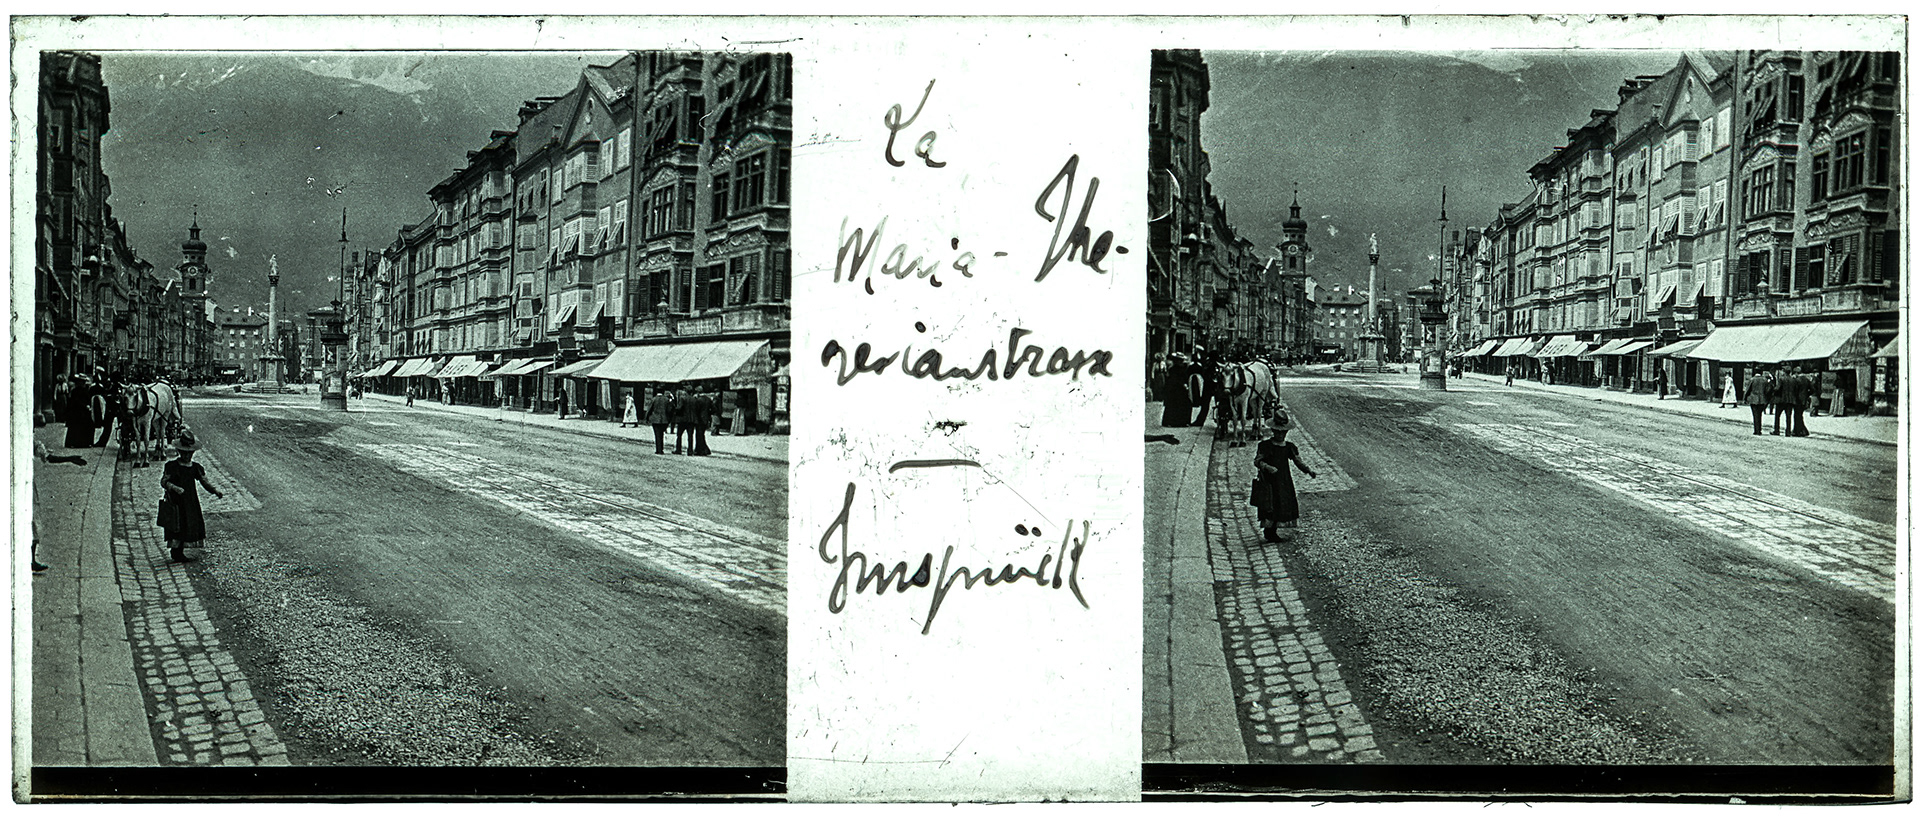 La
Maria-The-
resianstrasse
Innsprück